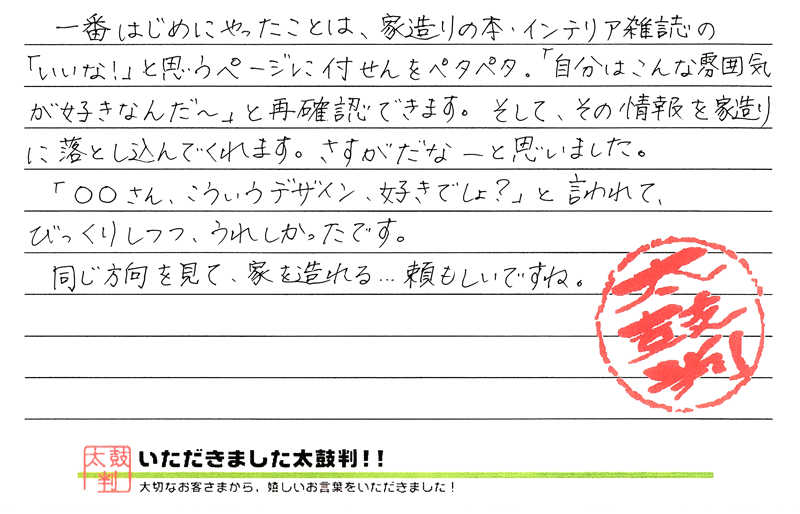 一番はじめにやったことは、家造りの本・インテリア雑誌の
「いいな!」と思うページに付せんをペタペタ。「自分はこんな雰囲気
が好きなんだ〜」と再確認できます。そして、その情報を家造り
に落とし込んでくれます。さすがだなーと思いました。
「〇〇さん、こういうデザイン、好きでしょ?」と言われて、
びっくりしつつ、うれしかったです。
同じ方向を見て、家を造れる…頼もしいですね。
太鼓判
太鼓判
いただきました太鼓判!!
大切なお客さまから、嬉しいお言葉をいただきました!